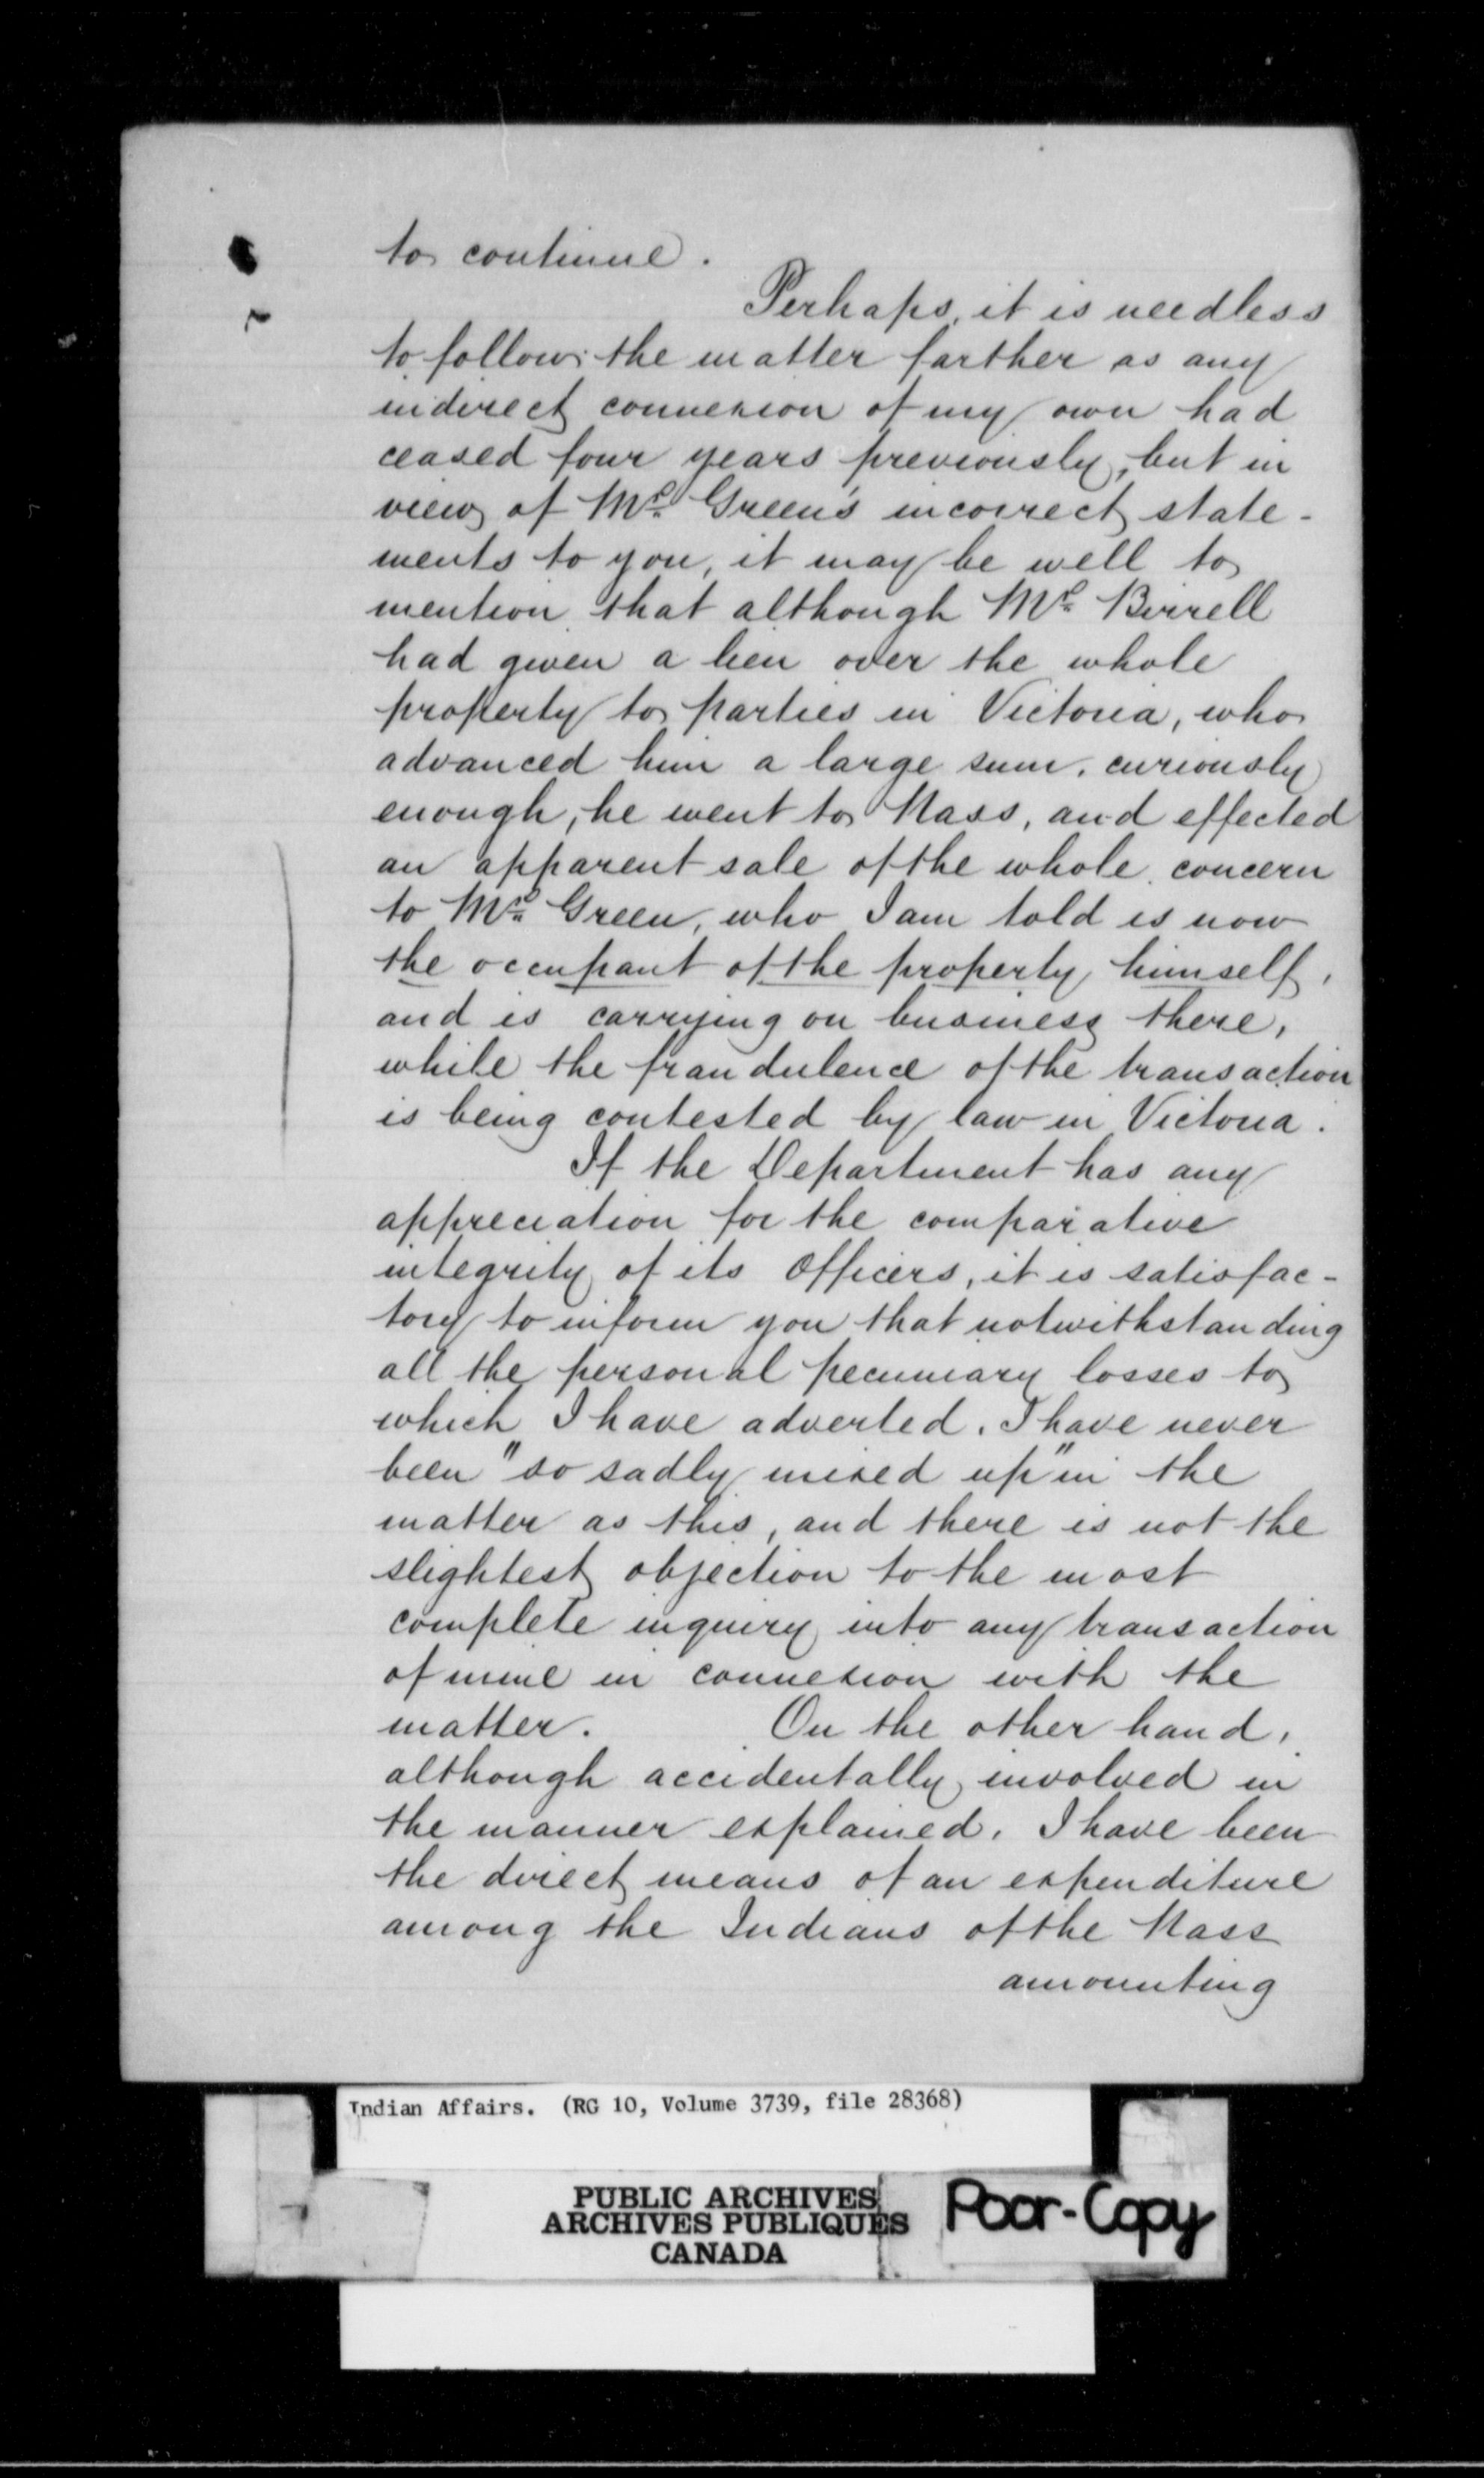 to continue.
Perhaps, it is needless
to follow the matter farther as any
indirect connexion of my own had
ceased four years previously, but in
view of Mr. Green's incorrect state-
ments to you, it may be well to
mention that although Mr. Birrell
had given a lien over the whole
property to parties in Victoria, who
advanced him a large sum, curiously
enough, he went to Nass, and effected
an apparent sale of the whole concern
to Mr. Green, who I am told is now
the occupant of the property himself,
and is carrying on business there,
while the fraudulence of the transaction
is being contested by law in Victoria.
If the Department has any
appreciation for the comparative
integrity of its Officers, it is satisfac-
tory to inform you that notwithstanding
all the personal pecuniary losses to
which I have adverted, I have never
been "so sadly mixed up" in the
matter as this, and there is not the
slightest objection to the most
complete inquiry into any transaction
of mine in connexion with the
matter. On the other hand,
although accidentally involved in
the manner explained, I have been
the direct means of an expenditure
among the Indians of the Nass
amounting
Indian Affairs. (RG 10, Volume 3739, file 28368)
PUBLIC ARCHIVES
ARCHIVES PUBLIQUES
CANADA
Poor-Copy